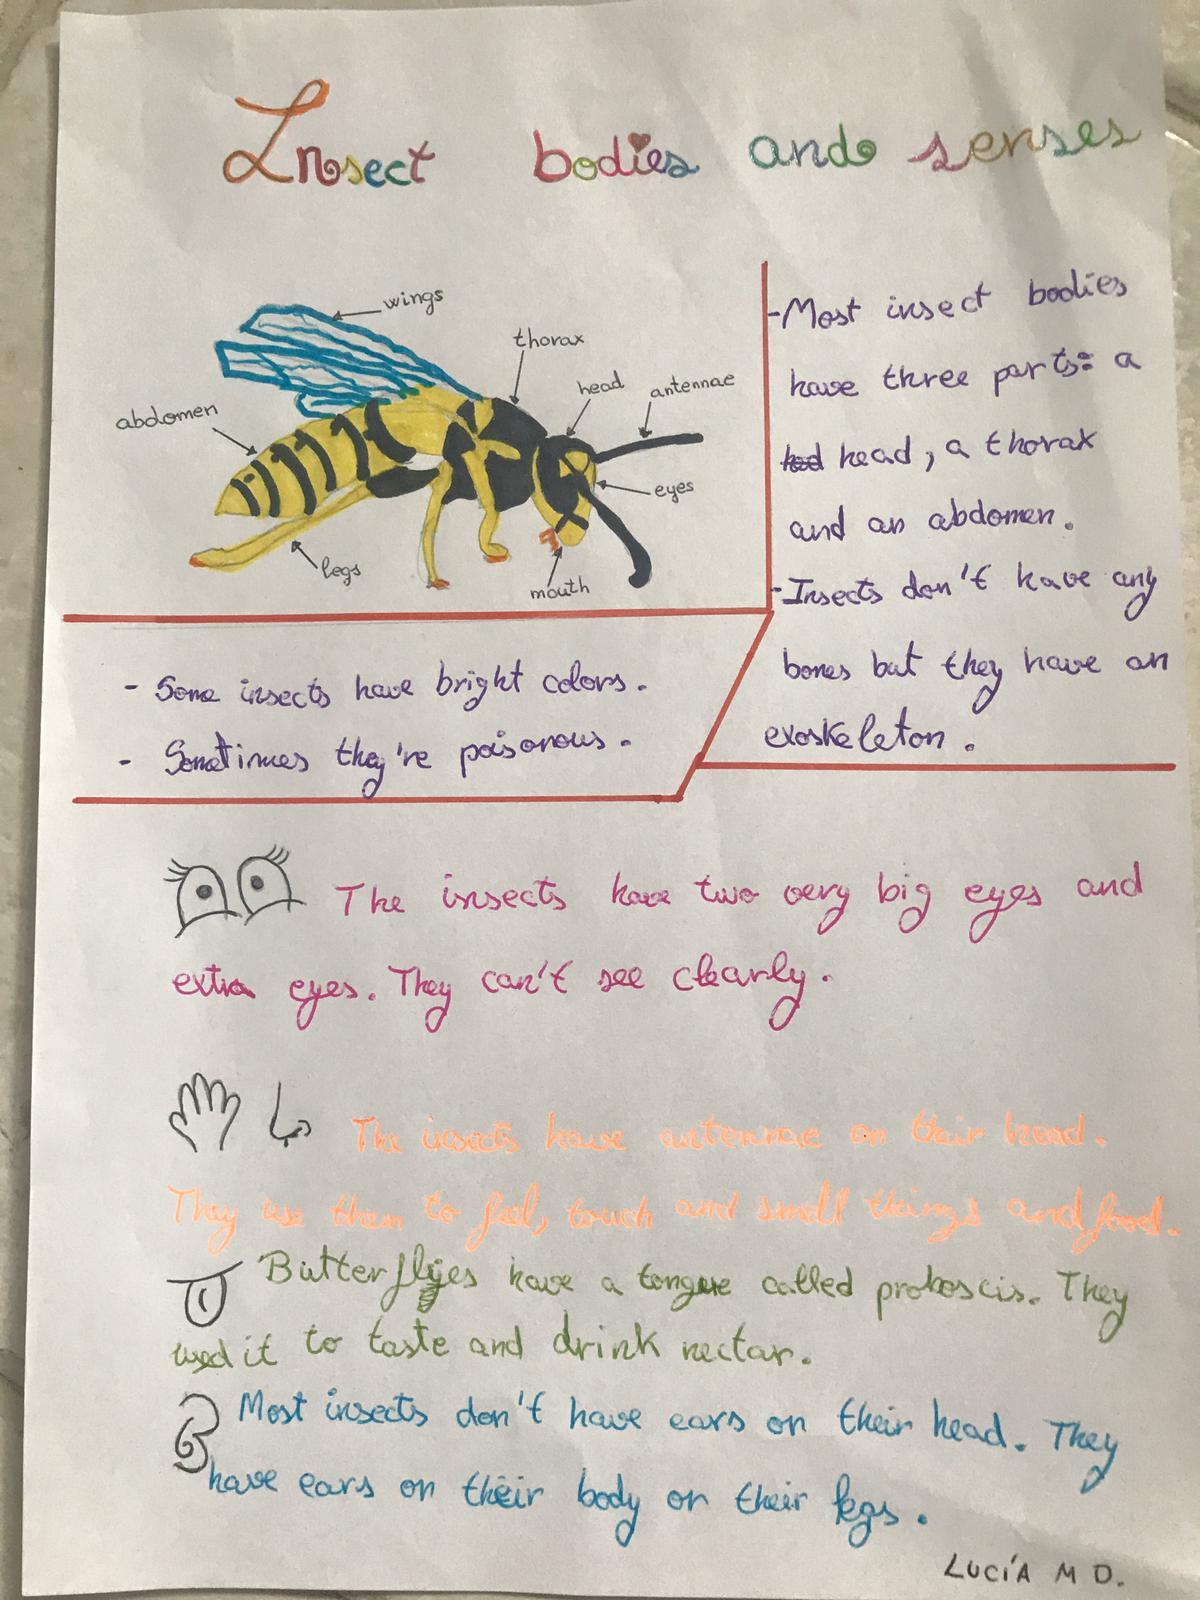 Insect bodies and senses
wings
thorax
head
antennae
abdomen
eyes
legs
mouth
-Most insect bodies
have three parts: a
hed head, a thorax
and an abdomen.
-Insects don't have any
bones but they have an
exoskeleton.
- Some insects have bright colors.
- Sometimes they're poisonous.
The insects have two very big eyes and
extra eyes. They can't see clearly.
The insects have antennae on their head.
They use them to feel, touch and smell things and food.
Butterflyes have a tongue called proboscis. They
used it to taste and drink nectar.
Most insects don't have ears on their head. They
have ears on their body or their legs.
LUCÍA M D.